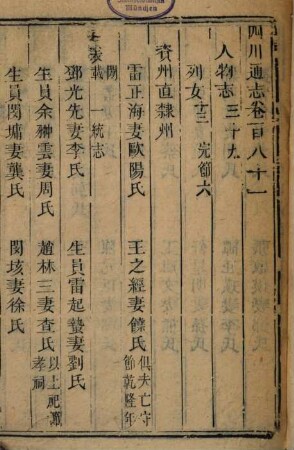 München
四川通志卷百八十一
人物志 三十九
列女 十三 完節六
資州直隸州
雷正海妻歐陽氏 王之經妻饒氏 俱夫亡守節乾隆年
間
表載 一統志
鄧光先妻李氏 生員雷起蟄妻劉氏
生員余翀雲妻周氏 趙林三妻查氏 以上祀孝祠
生員閔墉妻龔氏 閔垓妻徐氏